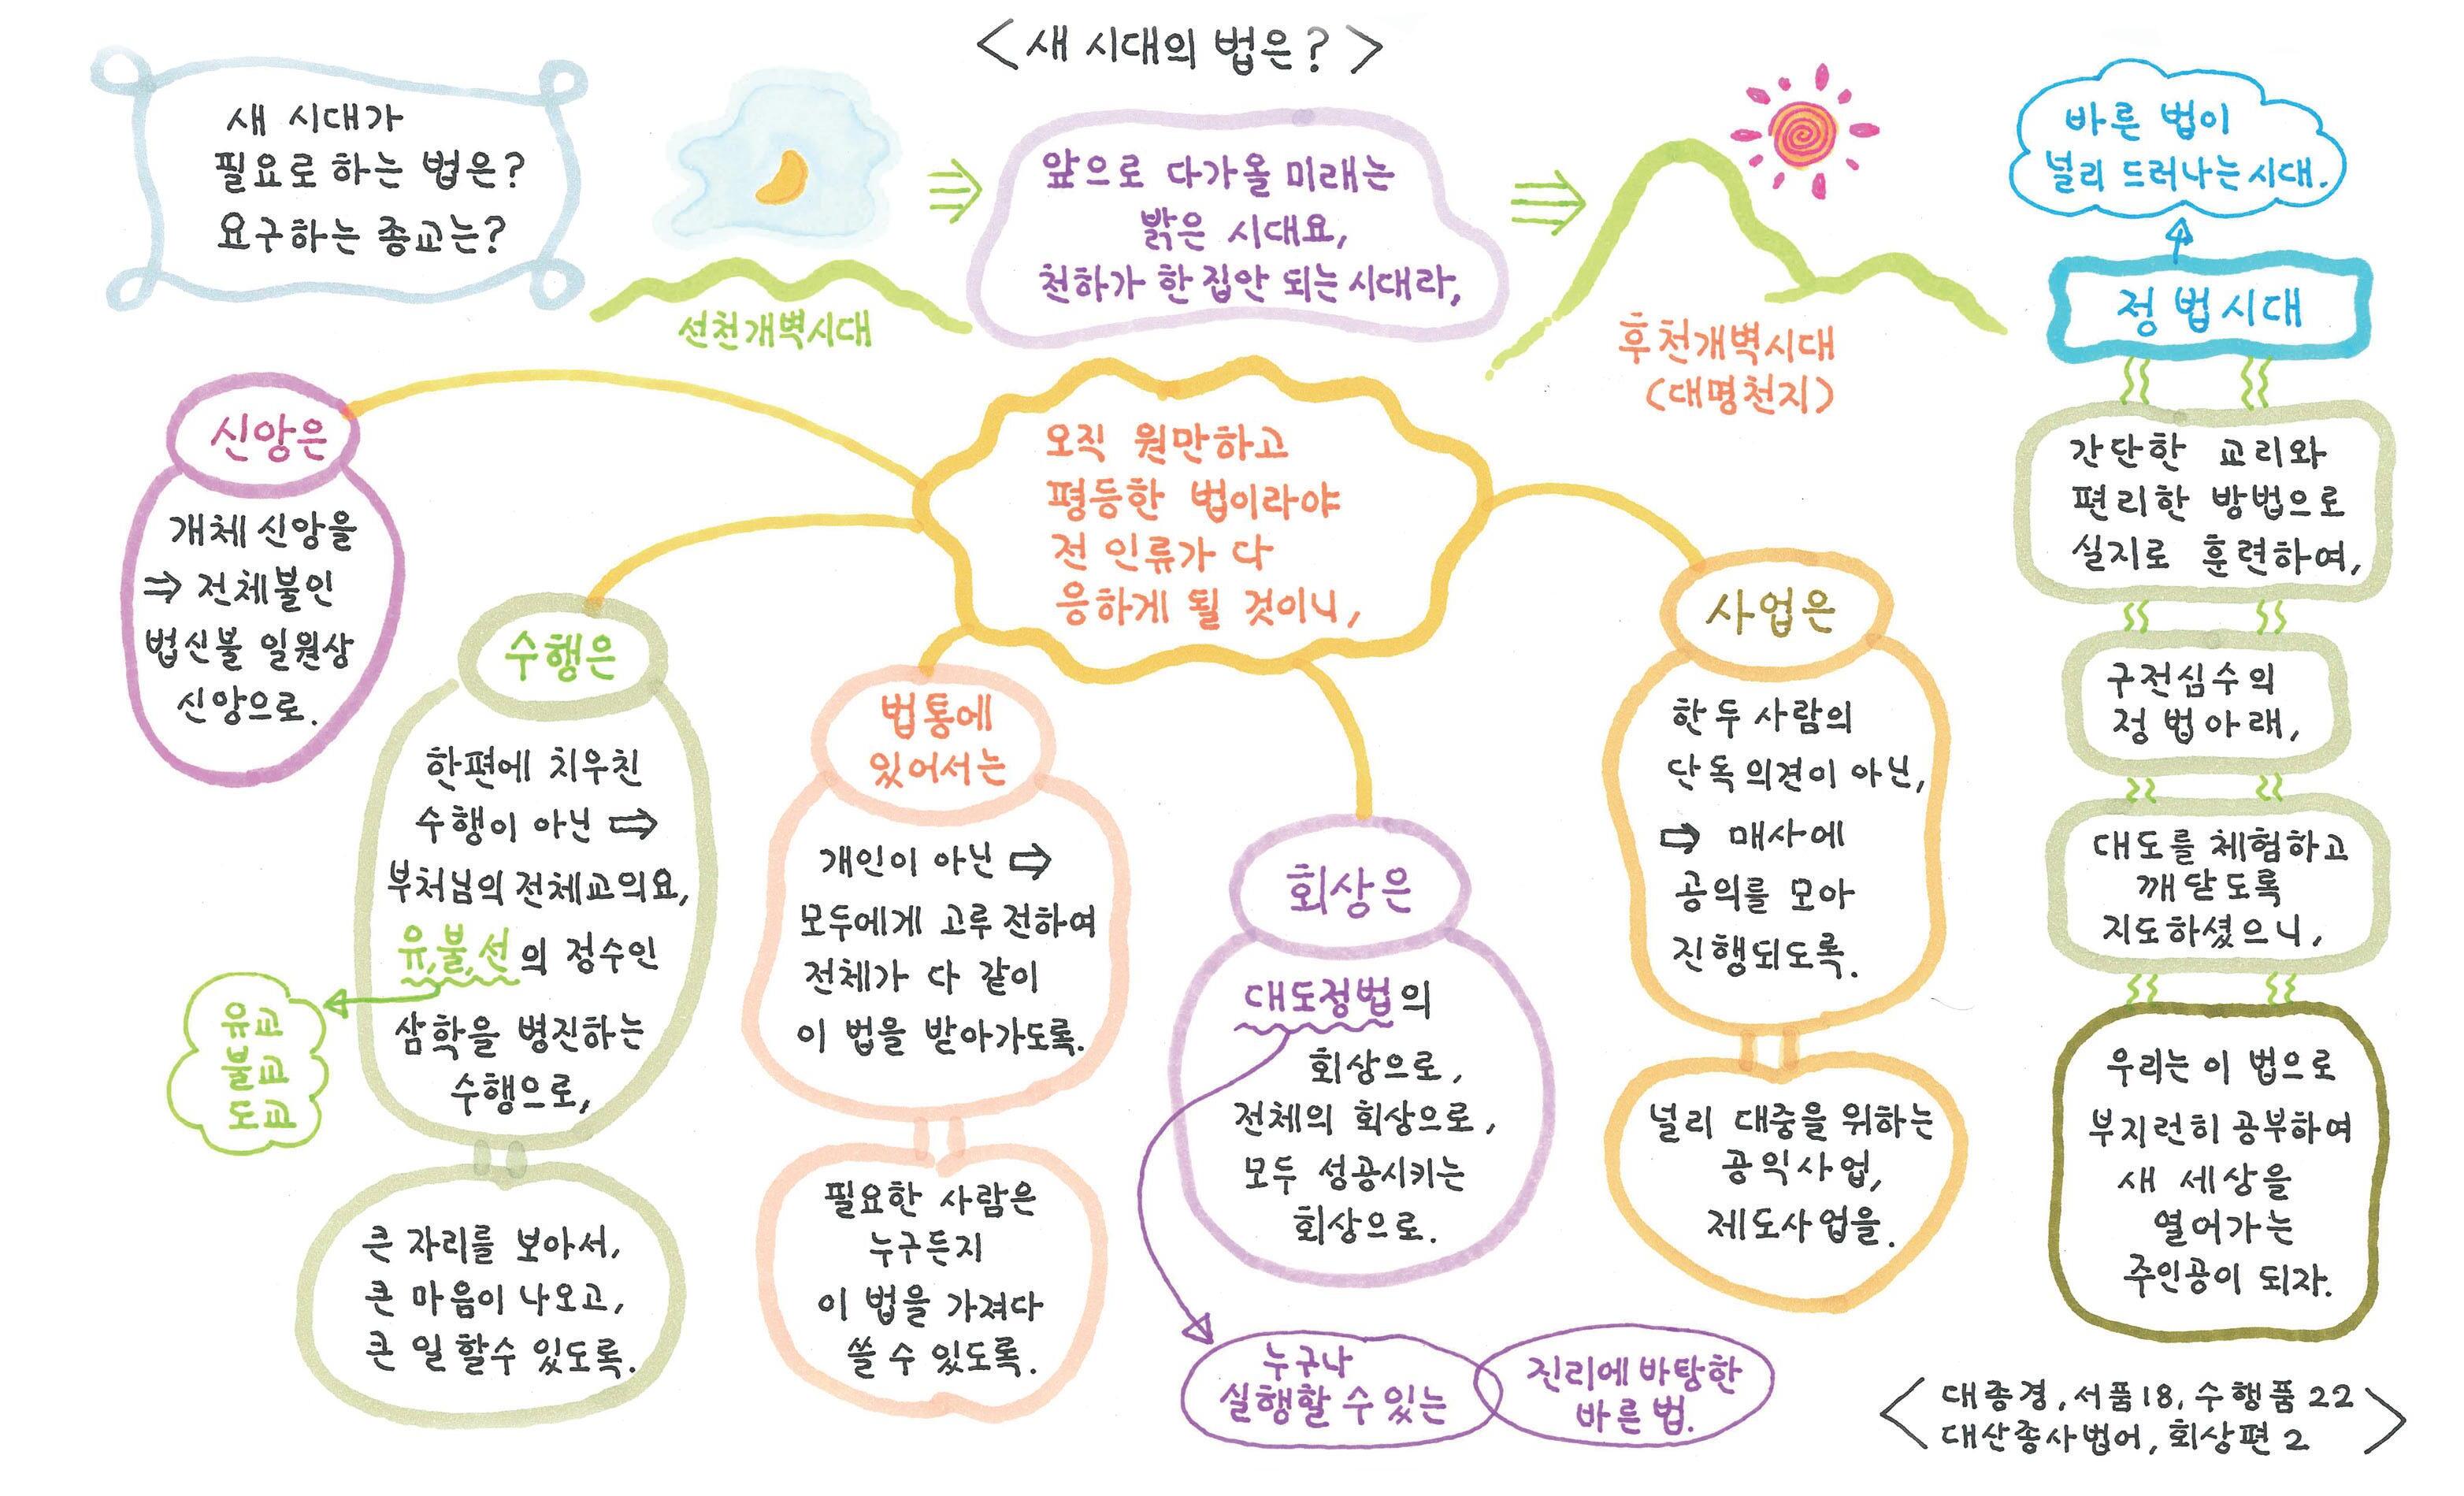 <새 시대의 법은?>
새 시대가
필요로 하는 법은?
요구하는 종교는?
선천개벽시대
앞으로 다가올 미래는
밝은 시대요,
천하가 한 집안 되는 시대라,
후천개벽시대
(대명천지)
오직 원만하고
평등한 법이라야
전 인류가 다
응하게 될 것이니,
신앙은
개체 신앙을
⇒ 전체불인
법신불 일원상
신앙으로.
수행은
한편에 치우친
수행이 아닌 ⇒
부처님의 전체교의요,
유,불,선의 정수인
삼학을 병진하는
수행으로,
유교
불교
도교
큰 자리를 보아서,
큰 마음이 나오고,
큰 일 할수 있도록.
법통에
있어서는
개인이 아닌 ⇒
모두에게 고루 전하여
전체가 다 같이
이 법을 받아가도록.
필요한 사람은
누구든지
이 법을 가져다
쓸 수 있도록.
회상은
대도정법의
회상으로,
전체의 회상으로,
모두 성공시키는
회상으로.
누구나
실행할 수 있는
진리에 바탕한
바른 법.
사업은
한 두 사람의
단독 의견이 아닌,
⇒ 매사에
공의를 모아
진행되도록.
널리 대중을 위하는
공익사업,
제도사업을.
바른 법이
널리 드러나는 시대.
정법시대
간단한 교리와
편리한 방법으로
실지로 훈련하여,
구전심수의
정법아래,
대도를 체험하고
깨닫도록
지도하셨으니,
우리는 이 법으로
부지런히 공부하여
새 세상을
열어가는
주인공이 되자.
<대종경, 서품18, 수행품 22
대산종사법어, 회상편 2>